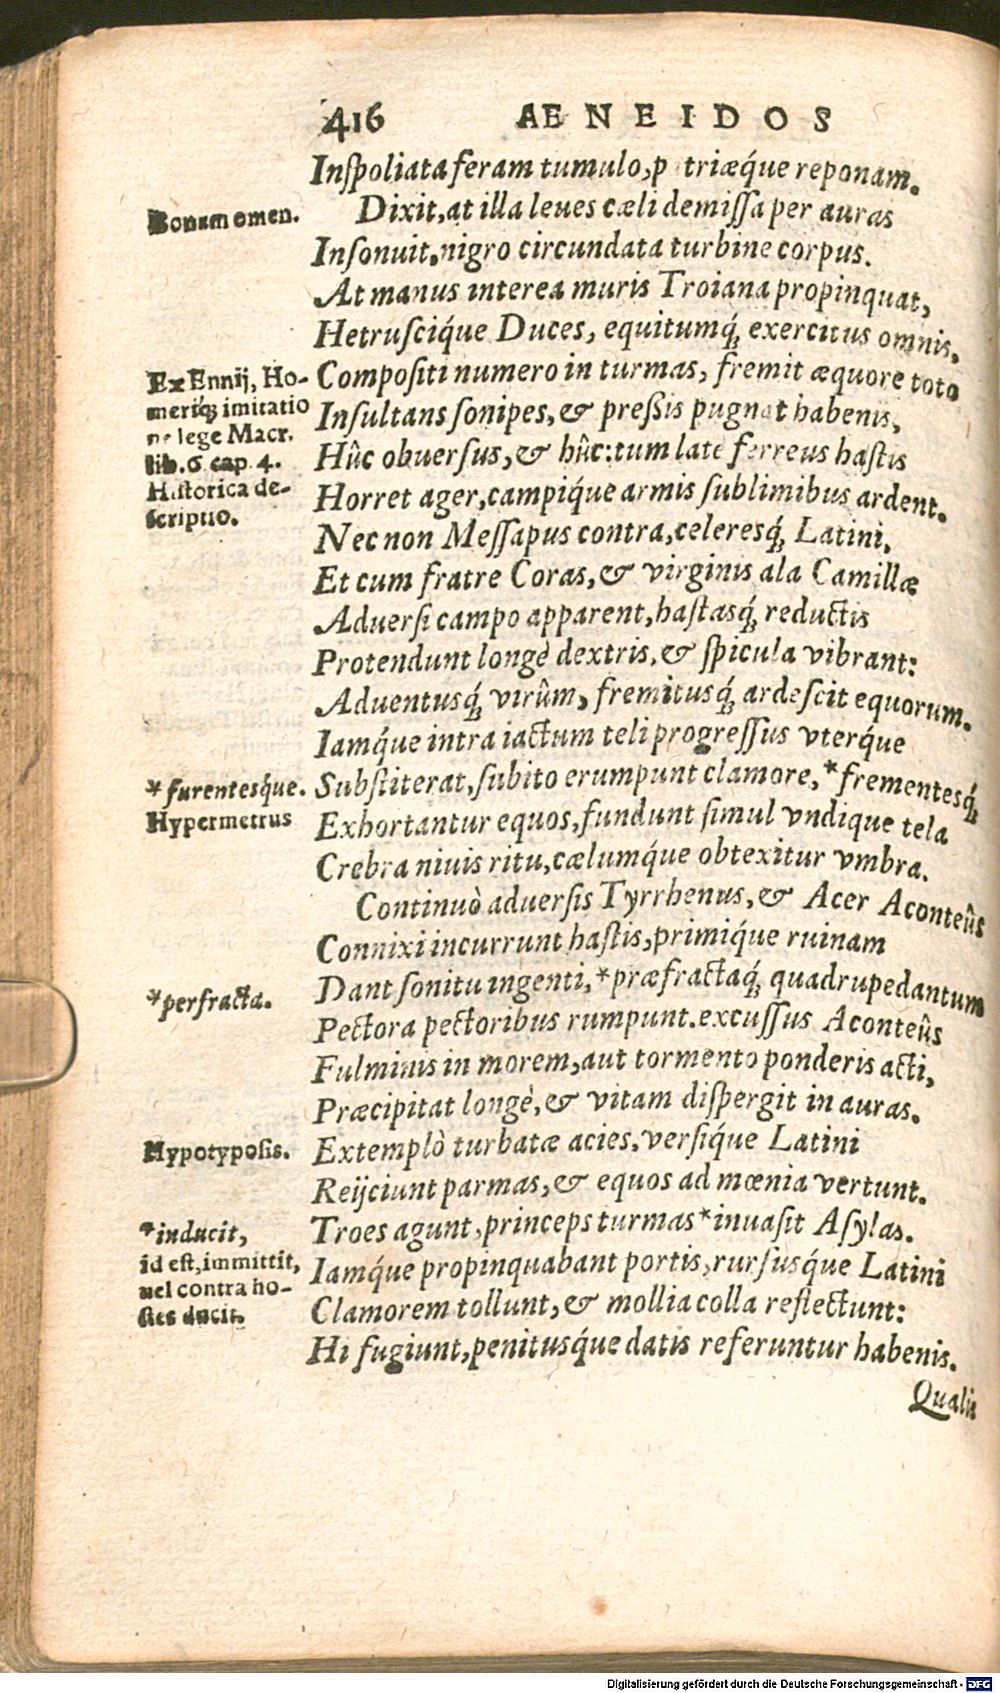 416 AENEIDOS
Inſpoliata feram tumulo, p triæq́ue reponam.
Bonum omen.
Dixit, at illa leues cæli demiſſa per auras
Inſonuit, nigro circundata turbine corpus.
At manus interea muris Troiana propinquat,
Hetruſciq́ue Duces, equitumq́; exercitus omnis,
Ex Ennij, Ho-
meriq́; imitatio
ne lege Macr.
lib. 6 cap. 4.
Historica de-
scriptio.
Compoſiti numero in turmas, fremit æquore toto
Inſultans ſonipes, & preßis pugnat habenis,
Hûc obuerſus, & hûc: tum late ferreus haſtis
Horret ager, campiq́ue armis ſublimibus ardent.
Nec non Meſſapus contra, celeresq́; Latini,
Et cum fratre Coras, & virginis ala Camillæ
Aduerſi campo apparent, haſtasq́; reductis
Protendunt longè dextris, & ſpicula vibrant:
Aduentusq́; virûm, fremitusq́; ardeſcit equorum.
Iamq́ue intra iactum teli progreſſus vterq́ue
* furentesq́ue.
Hypermetrus
Subſtiterat, ſubito erumpunt clamore, * frementesq́;
Exhortantur equos, fundunt ſimul vndique tela
Crebra niuis ritu, cælumq́ue obtexitur vmbra.
Continuò aduerſis Tyrrhenus, & Acer Aconteûs
Connixi incurrunt haſtis, primiq́ue ruinam
* perfracta.
Dant ſonitu ingenti, * præfractaq́; quadrupedantum
Pectora pectoribus rumpunt. excuſſus Aconteûs
Fulminis in morem, aut tormento ponderis acti,
Præcipitat longè, & vitam diſpergit in auras.
Hypotyposis.
Extemplò turbatæ acies, verſiq́ue Latini
Reijciunt parmas, & equos ad mœnia vertunt.
* inducit,
id est, immittit,
uel contra ho-
stes ducit.
Troes agunt, princeps turmas * inuaſit Aſylas.
Iamq́ue propinquabant portis, rurſusq́ue Latini
Clamorem tollunt, & mollia colla reflectunt:
Hi fugiunt, penitusq́ue datis referuntur habenis.
Qualis
Digitalisierung gefördert durch die Deutsche Forschungsgemeinschaft - DFG